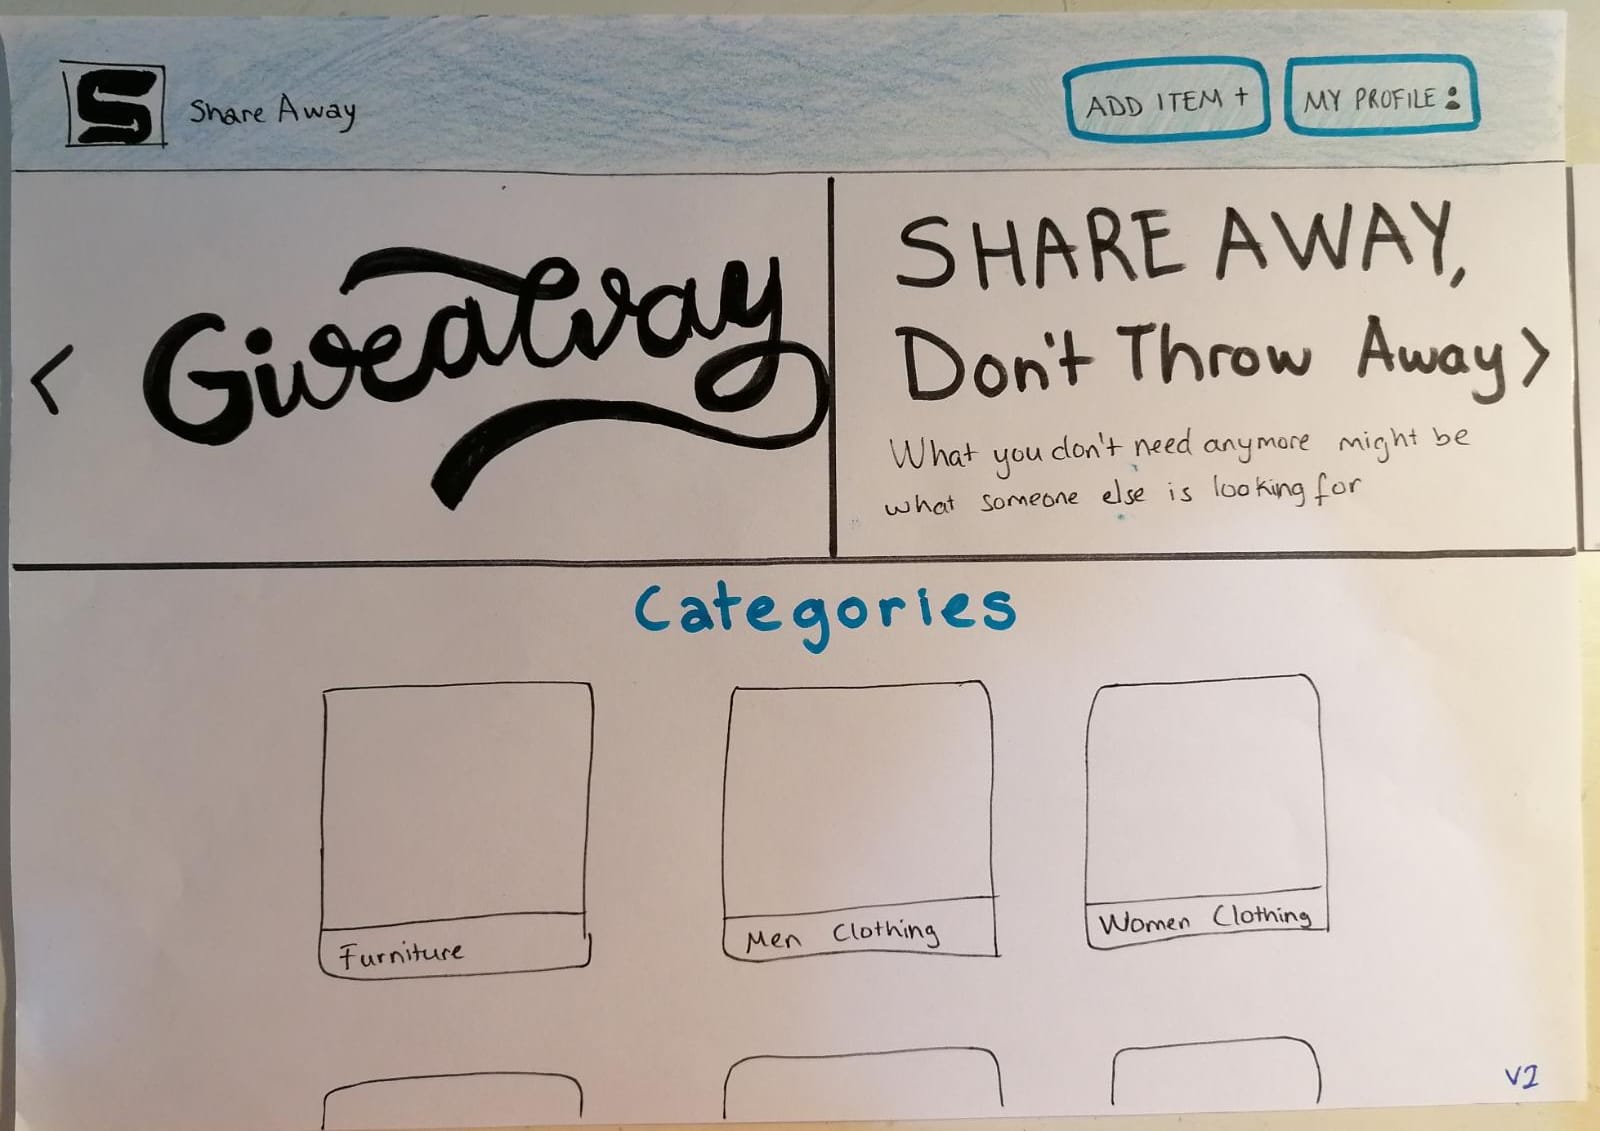 S
Share Away
ADD ITEM +
MY PROFILE
<
Giveaway
SHARE AWAY,
Don't Throw Away >
What you don't need anymore might be
what someone else is looking for
Categories
Furniture
Men Clothing
Women Clothing
V2